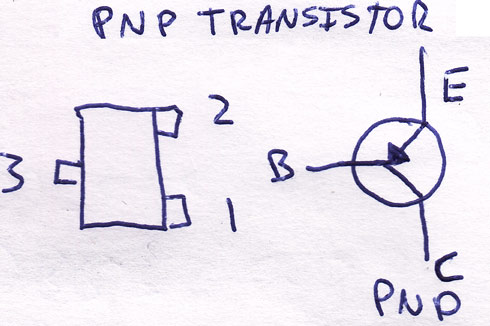 PNP TRANSISTOR
E
2
3
B
1
C
PNP